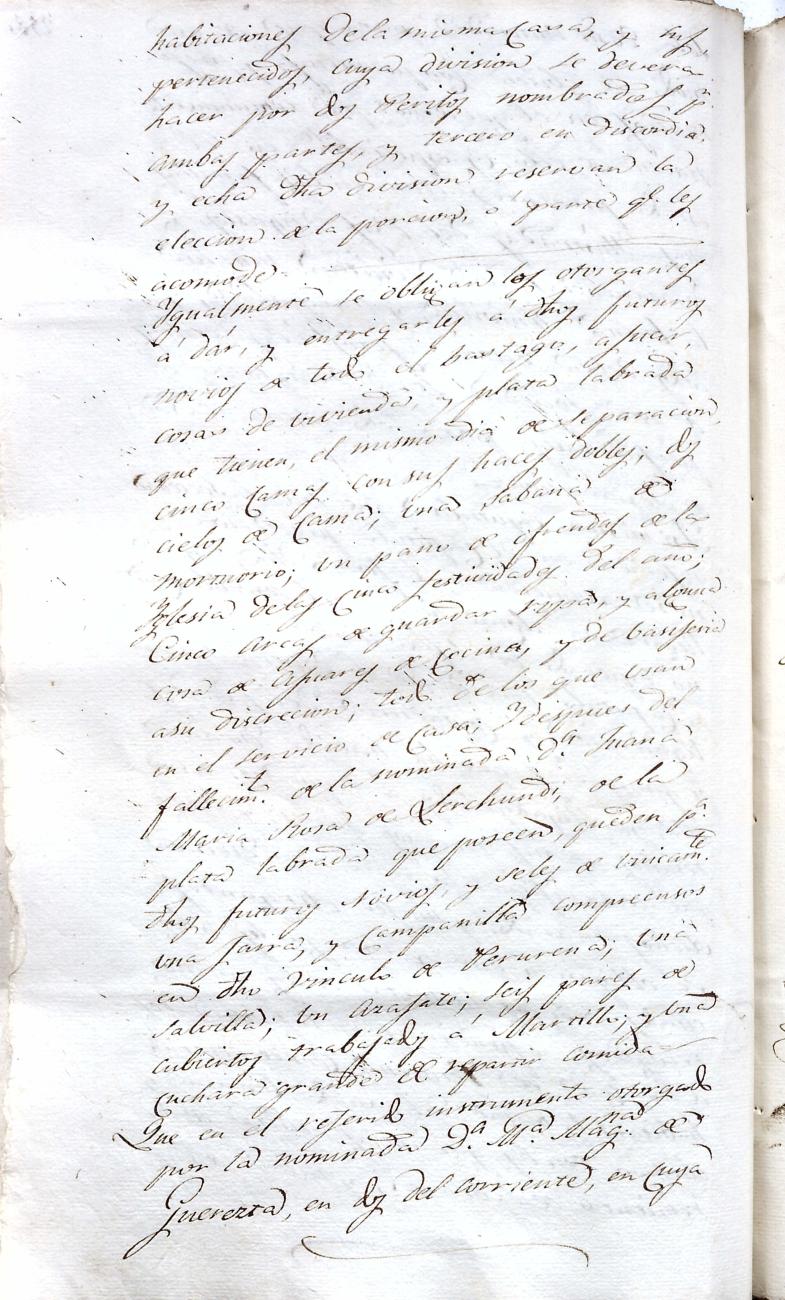 habitaciones de la misma Casa, y sus
pertenecidos, cuya division se devera
hacer por dos Peritos nombrados pr.
ambas partes, y tercero en discordia:
y echa dha division reservan la
eleccion de la porcion, o parte qe. les
acomode
Ygualmente se obligan los otorgantes
a dár, y entregarles á dhos futuros
novios de todo el hastage, ajuar,
cosas de vivienda, y plata labrada
que tienen, el mismo dia de separacion,
cinco Camas con sus haces dobles; dos
cielos de Cama; una Sabana de
mormorio; un paño de ofrendas de la
Yglesia de las Cinco festividades del año;
Cinco Arcas de guardar ropa, y alguna
cosa de Ajuares de Cocina, y de basijeria
asu discrecion; todo de los que usan
en el servicio de Casa; Y despues del
fallecimto. de la nominada Da. Juana
Maria Rosa de Lerchundi, de la
plata labrada que poseen, queden pa.
dhos futuros novios, y seles de unicamte.
una Jarra, y Campanilla comprecusos
en dho Vinculo de Perurena; una
salvilla; un Azafate; seis pares de
cubiertos trabajados á Martillo; y una
cuchara grande de repartir comida
Que en el referido instrumento otorgado
por la nominada Da. Ma. Magnad. de
Guerezta, en dos del corriente, en cuya